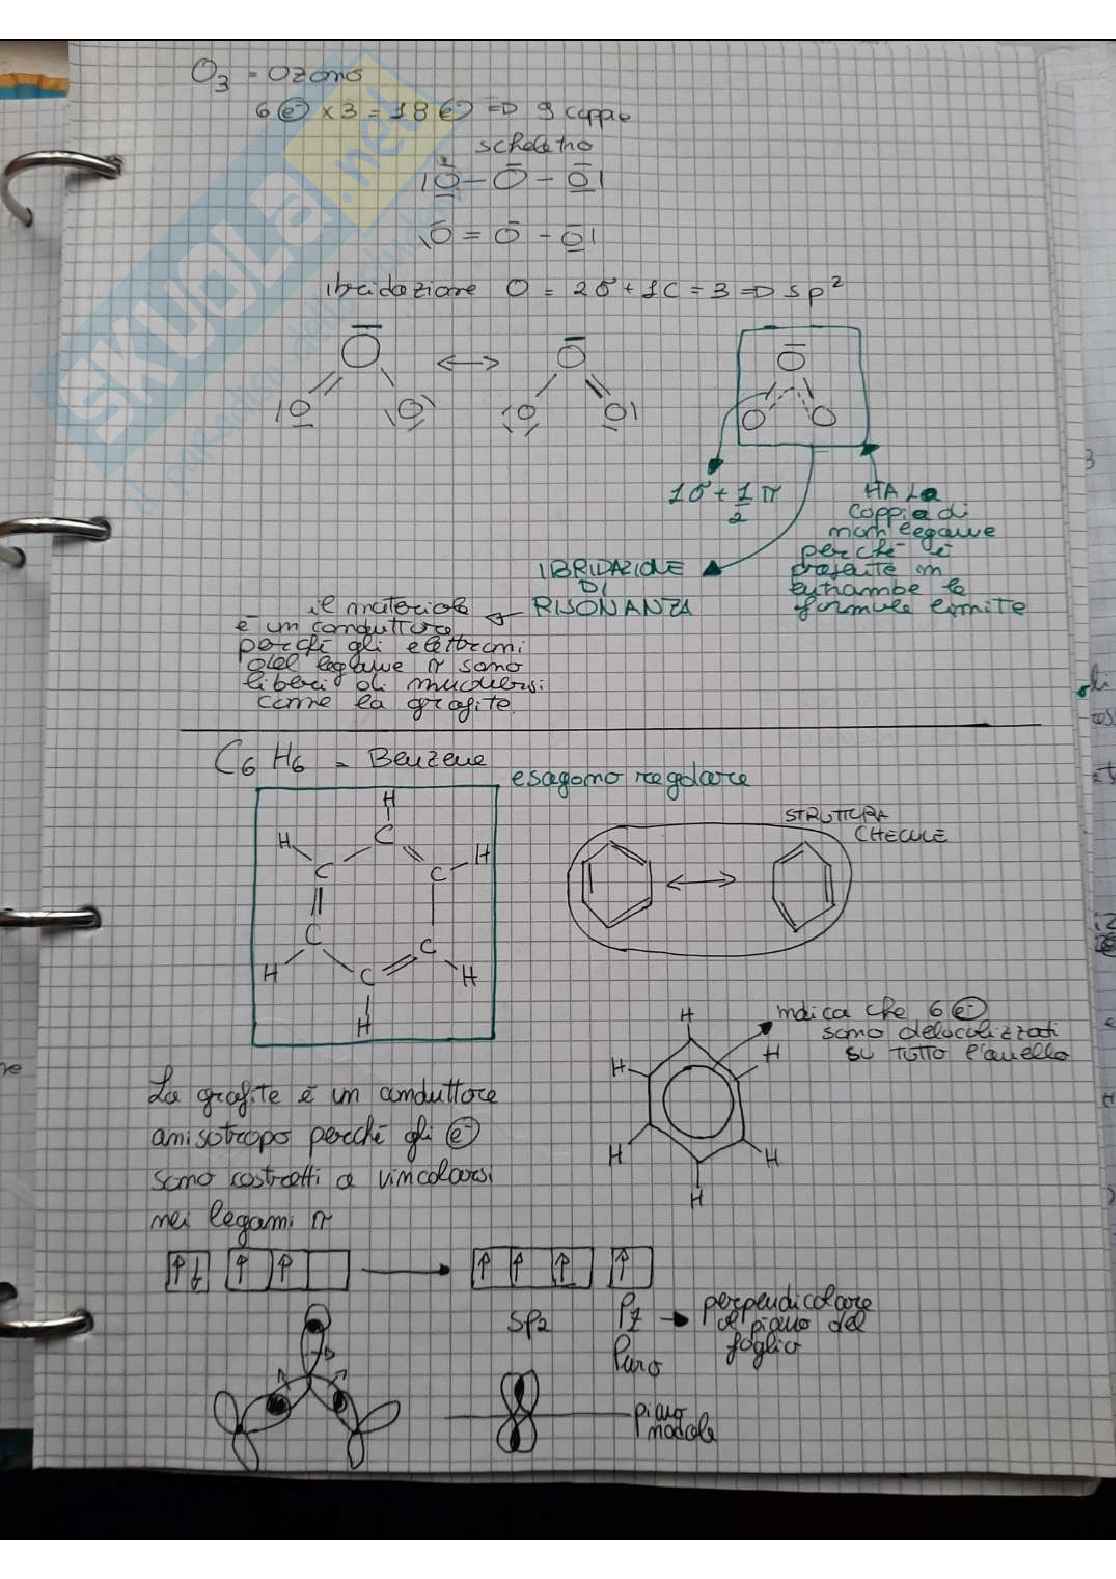 O3 - Ozono
6 e- x 3 = 18 e- => 9 coppie
scheletro
|O - O - O|
\O = O - O|
ibridazione O = 2σ + 1C = 3 => sp2
O <-> O
O
|O O| |O O|
O O
1σ + 1/2 π
HA La
coppia di
non legame
perché è
presente in
entrambe le
formule limite
IBRIDAZIONE
DI
RISONANZA
il materiale
è un conduttore
perché gli elettroni
del legame π sono
liberi di muoversi
come la grafite.
C6 H6 - Benzene
esagono regolare
STRUTTURA
H
C
H C C H
C C
H C H
H
indica che 6 e-
sono delocalizzati
su tutto l'anello
H
H H
H H
H
La grafite è un conduttore
anisotropo perché gli e-
sono costretti a vincolarsi
nei legami π
sp2
Pz → perpendicolare
al piano del
foglio
Puro
piano
nodale
SKUOLA.net